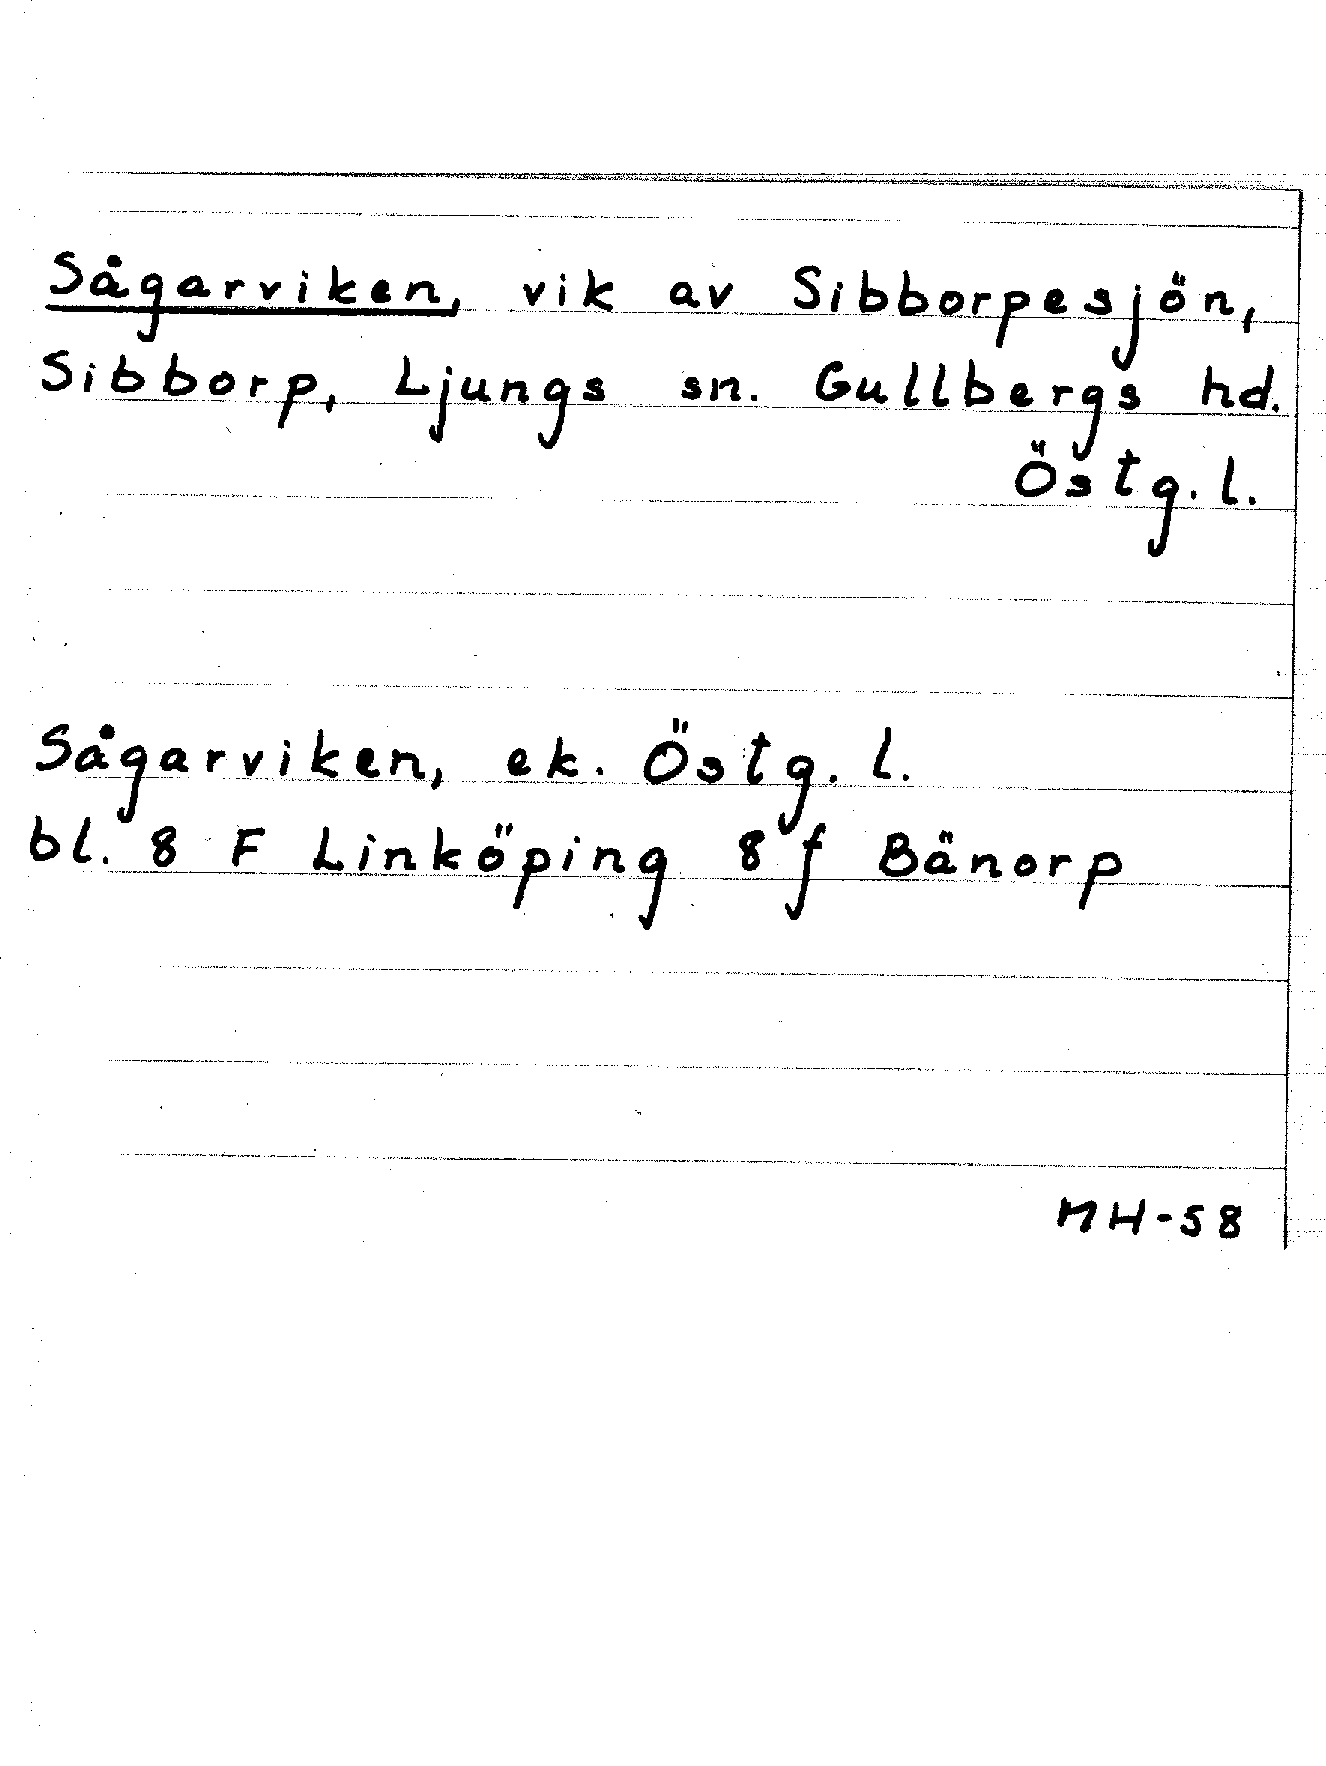 Sågarviken, vik av Sibborpesjön,
Sibborp, Ljungs sn. Gullbergs hd.
Östg. l.
Sågarviken, ek. Östg. l.
bl. 8 F Linköping 8 f Bänorp
MH-58